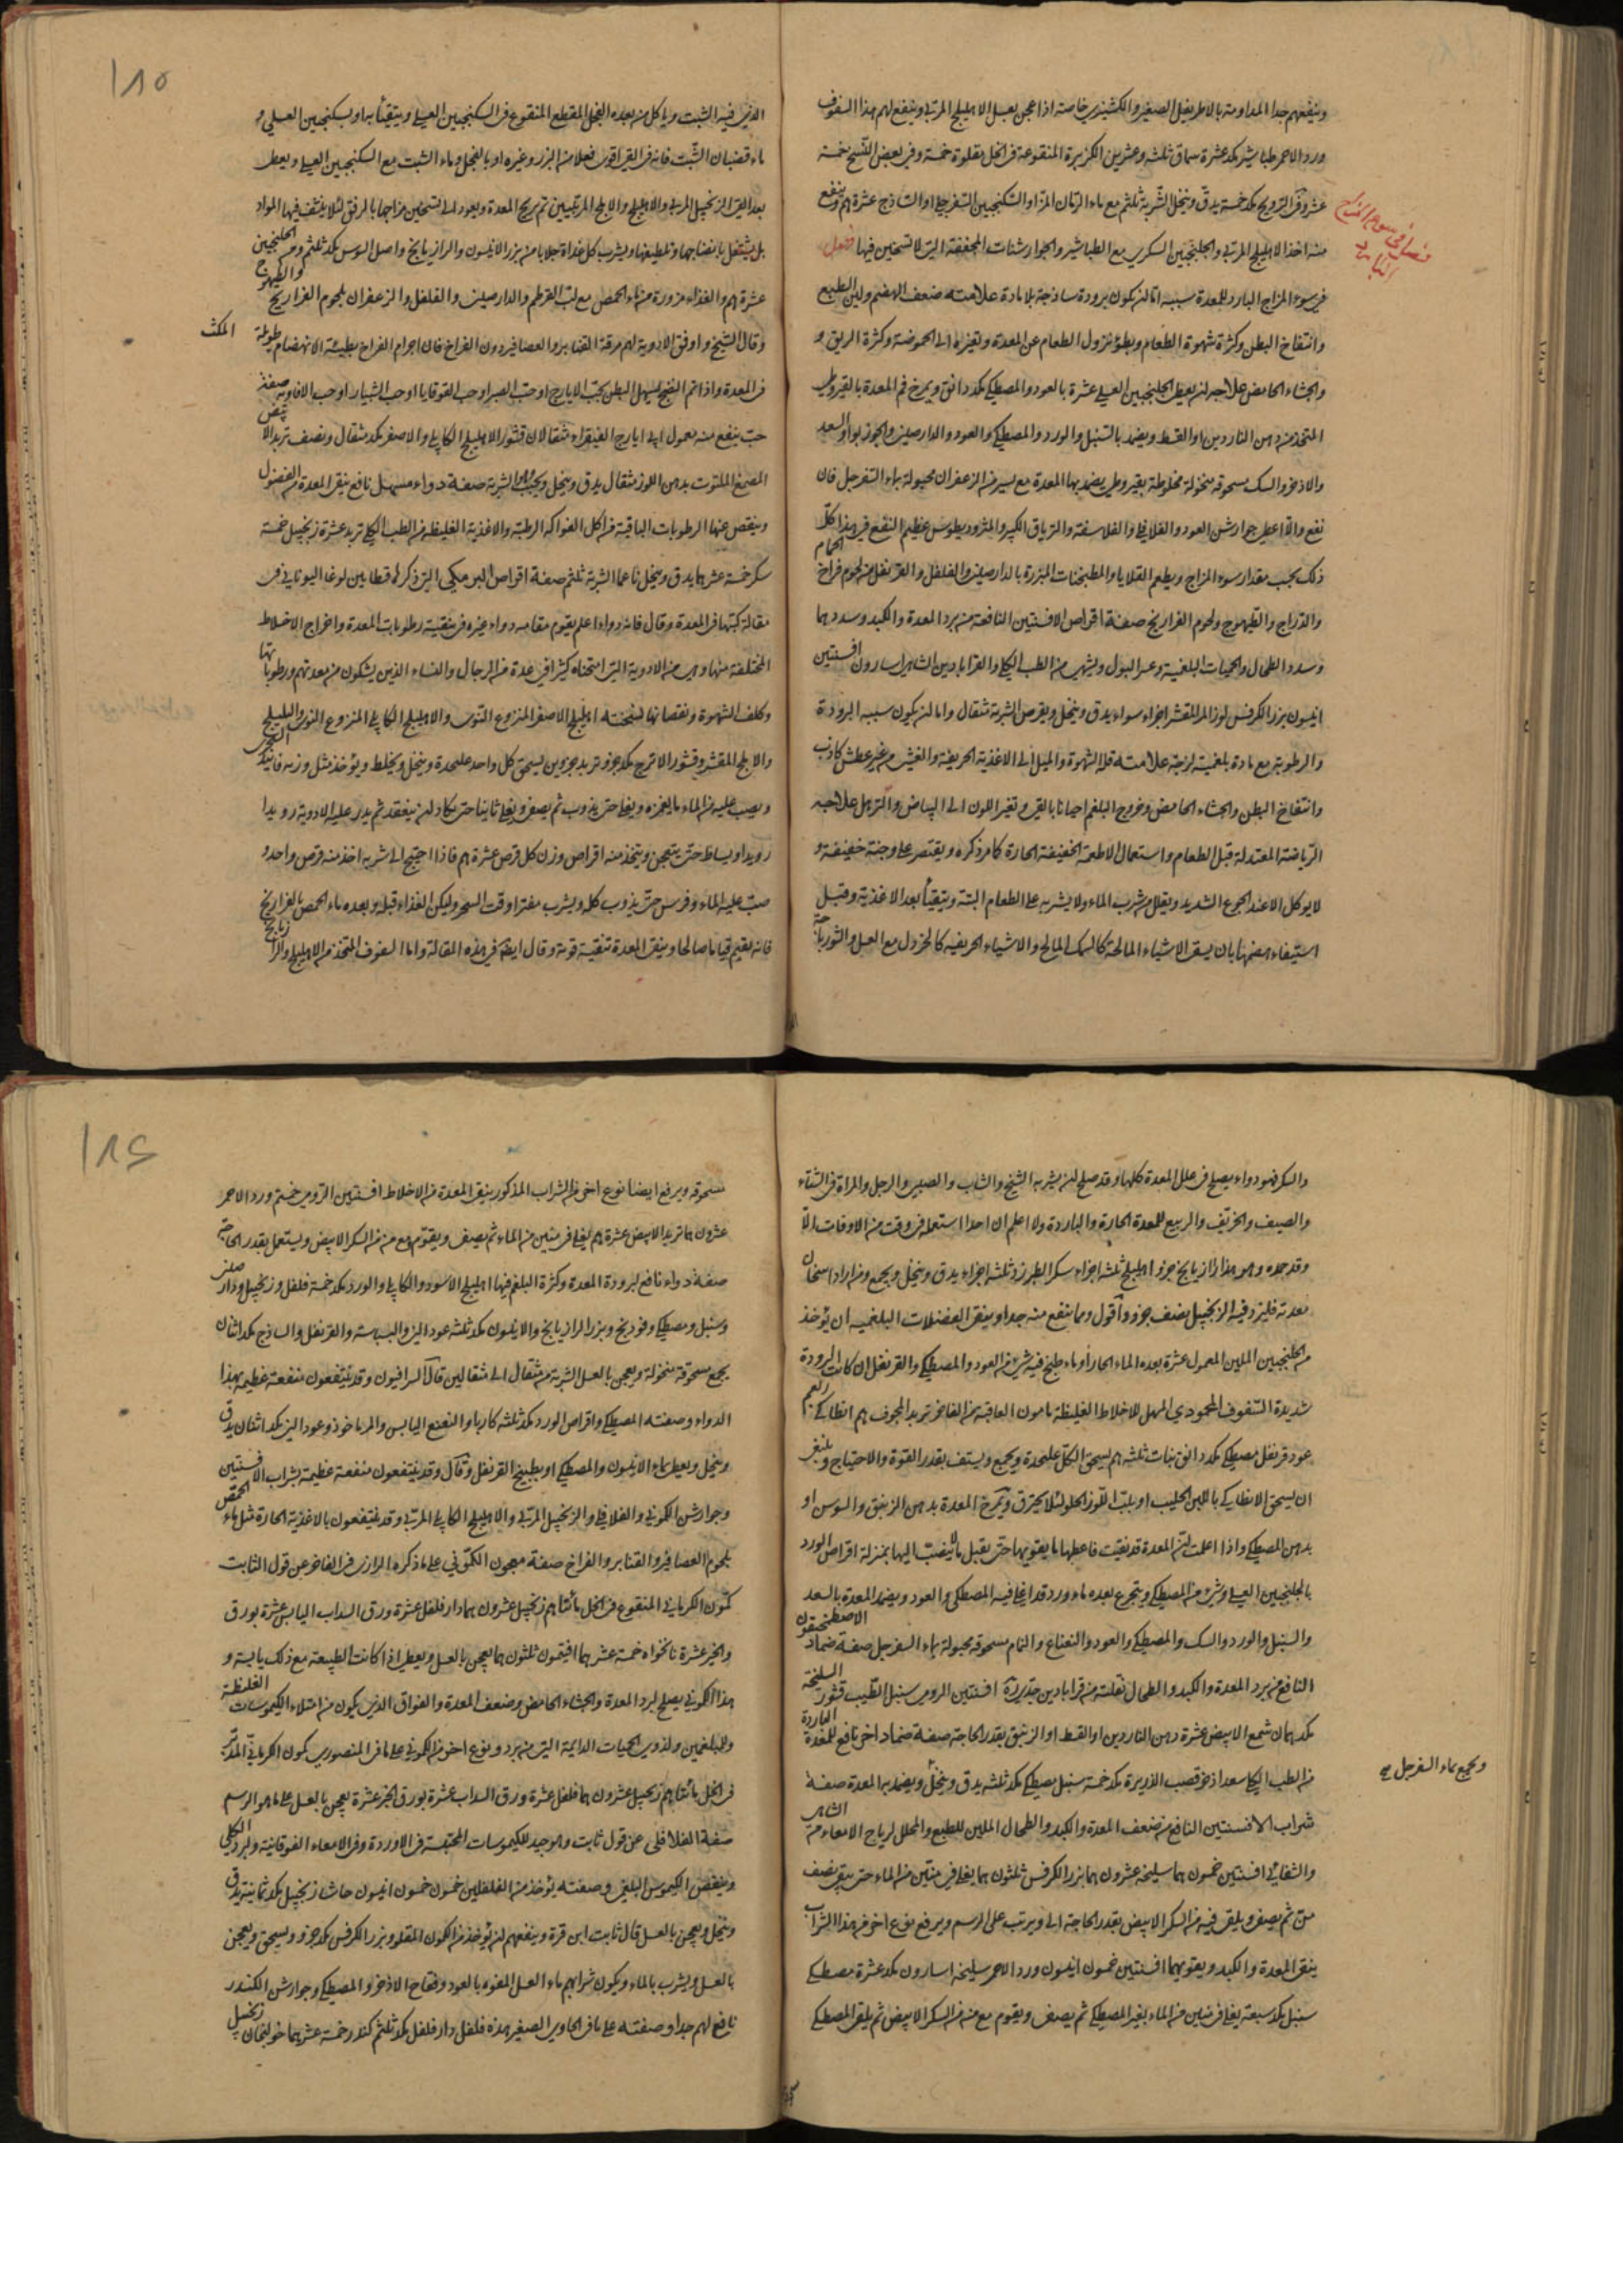 وينفعهم جدا المداومة بالاطريفل الصغير والكشنيزي خاصة اذا عجن بعسل الاهليلج المربى وينفع لهم هذا السفوف
ورد الاحمر طباشير مكد عشرة سماق ثلثه وعشرين الكزبرة المنقوعة في الخل مقلوة خمسة وفي بعض النسخ خمسة
عشر وفي الترويج مكد خمسة يدق وينخل الشربة ثلثم مع ماء الرمان المز او السكنجبين السفرجلي او الساذج عشرة هم وينفع
منه اخذ الاهليلج المربى والجلنجبين السكري مع الطباشير والجوارشنات المجففة التي لا تسخين فيها فصل
في سوء المزاج البارد للمعدة سببه اما ان يكون برودة ساذجة بلا مادة علامته ضعف الهضم ولين الطبع
وانتفاخ البطن وكثرة شهوة الطعام وبطؤ نزول الطعام عن المعدة وتغيره الى الحموضة وكثرة الريق و
والجشاء الحامض علاجه ان يعطى الجلنجبين العسلي عشرة بالعود والمصطكي مكد دانق ويمرخ فم المعدة بالقيروطي
المتخذ من دهن الناردين او القسط ويضمد بالسنبل والورد والمصطكي والعود والدارصيني والجوزبوا والسعد
والاذخر والسك مسحوقة منخولة مخلوطة بقيروطي يضمد بها المعدة مع يسير من الزعفران مجبولة بماء السفرجل فان
نفع والا اعطي جوارشن العود والفلافلي والفلاسفة والترياق الكبير والمثروديطوس عظيم النفع في هذا كل
ذلك بحسب مقدار سوء المزاج ويطعم القلايا والمطبخنات المبزرة بالدارصيني والفلفل والقرنفل من لحوم فراخ الحمام
والدراج والطيهوج ولحوم الفراريج صفة اقراص الافسنتين النافعة من برد المعدة والكبد وسددهما
وسدد الطحال والحميات البلغمية وعسر البول ويشهي من الطب الملكي والقرابادين الشاهي اسارون افسنتين
انيسون بزر الكرفس لوز المر المقشر اجزاء سواء يدق وينخل ويقرص الشربة مثقال واما ان يكون سببه البرودة
والرطوبة مع مادة بلغمية لزجة علامته قلة الشهوة والميل الى الاغذية الحريفة والغثي من غير عطش كاذب
وانتفاخ البطن والجشاء الحامض وخروج البلغم احيانا بالقي وتغير اللون الى البياض والترهل علاجه
الرياضة المعتدلة قبل الطعام واستعمال الاطعمة الخفيفة الحارة كما مر ذكره ويقتصر على وجبة خفيفة و
لا يوكل الا عند الجوع الشديد ويقلل من شرب الماء ولا يشربه على الطعام البتة ويتقيأ بعد الاغذية وقبل
استيفاء هضمها بان يسقى الاشياء المالحة كالسمك المالح والاشياء الحريفة كالخردل مع العسل والشورباجة
فصل في سوء المزاج
البارد
١٨٥
الذي فيه الشبت وياكل من بعده الفجل المقطع المنقوع في السكنجبين العسلي ويتقيأ به او بسكنجبين العسلي و
ماء قضبان الشبت فانه في القي اقوى فعلا من البزر وغيره او بالفجل وماء الشبت مع السكنجبين العسلي ويعطى
بعد القي الزنجبيل المربى والاهليلج والاملج المربيين ثم يريح المعدة ويعود الى تسخين مزاجها بالرفق لئلا ينشف فيها المواد
بل يشتغل بانضاجها وتلطيفها ويشرب كل غداة جلابا من بزر الانيسون والرازيانج واصل السوس مكد ثلثم ومن الجلنجبين
عشرة هم والغذاء مزورة من ماء الحمص مع لب القرطم والدارصيني والفلفل والزعفران بلحوم الفراريج والطيهوج
وقال الشيخ واوفق الادوية لهم مرقة القنابر والعصافير دون الفراخ فان اجرام الفراخ بطيئة الانهضام طويلة
المكث
في المعدة واذا تم النضج ليسهل البطن بحب الايارج او حب الصبر او حب القوقايا او حب الشبيار او حب الافاويه صفة
حب ينفع منه معمول لي ايارج الفيقراء مثقالان قشور الاهليلج الكابلي والاصفر مكد مثقال ونصف تربد الابيض
المصمغ الملتوت بدهن اللوز مثقال يدق وينخل ويحبب الشربة صفة دواء مسهل نافع ينقي المعدة من الفضول
وينقص عنها الرطوبات الباقية من اكل الفواكه الرطبة والاغذية الغليظة من الطب الملكي تربد عشرة زنجبيل خمسة
سكر خمسة عشر هما يدق وينخل ناعما الشربة ثلثم صفة اقراص البرمكي التي ذكرها قسطا بن لوقا اليوناني في
مقالة كتبها في المعدة وقال فانه دواء اعلم يقوم مقامه دواء غيره في تنقية رطوبات المعدة واخراج الاخلاط
المختلفة منها وهي من الادوية التي امتحناه كثيرا في عدة من الرجال والنساء الذين يشكون من معدتهم ورطوباتها
وكلف الشهوة ونقصانها لنسخته اهليلج الاصفر المنزوع النوى والاهليلج الكابلي المنزوع النوى والبليلج
والاملج المقشر وقشور الاترج مكد جزو تربد جزوين يسحق كل واحد على حدة وينخل ويخلط ويؤخذ مثل وزنه فانيذ
ويصب عليه من الماء ما يغمره ويغلى حتى يذوب ثم يصفى ويغلى ثانيا حتى يكاد ان ينعقد ثم يذر عليه الادوية رويدا
رويدا ويساط حتى يتعجن ويتخذ منه اقراص وزن كل قرص عشرة هم فاذا احتيج الى شربه اخذ منه قرص واحد و
صب عليه الماء ومرس حتى يذوب كله ويشرب مفترا وقت السحر وليكن الغذاء قبله وبعده ماء الحمص بالفراريج
فانه يقيم قياما صالحا وينقي المعدة تنقية قوية وقال ايضا في هذه المقالة واما السفوف المتخذ من الاهليلج والرازيانج
والسكر فهو دواء يصلح في علل المعدة كلها وقد صلح لان يشربه الشيخ والشاب والصبي والرجل والمراة في الشتاء
والصيف والخريف والربيع للمعدة الحارة والباردة ولا اعلم ان احدا استعمله في وقت من الاوقات الا
وقد حمده وهو هذا رازيانج جزو اهليلج ثلثه اجزاء سكر الطبرزد ثلثه اجزاء يدق وينخل ويجمع ومن اراد اسخان
معدته فليزد فيه الزنجبيل نصف جزو واقول ومما ينفع منه جدا وينقي الفضلات البلغمية ان يؤخذ
من الجلنجبين الملين المعمول عشرة بعده الماء الحار او ماء طبخ فيه شيء من العود والمصطكي والقرنفل ان كانت البرودة
شديدة السفوف المحمودي المسهل للاخلاط الغليظة مامون العاقبة من الفاخر تربد المجوف هم انطاكي
عود قرنفل مصطكي مكد دانق نبات ثلثه هم يسحق الكل على حدة ويجمع ويستف بقدر القوة والاحتياج وينبغي
ان يسحق الانطاكي باللبن الحليب او بلب اللوز الحلو لئلا يحترق ويمرخ المعدة بدهن الزنبق والسوسن او
بدهن المصطكي واذا علمت ان المعدة قد نقيت فاعطها ما يقويها حتى يقبل ما ينصب اليها بمنزلة اقراص الورد
بالجلنجبين العسلي وشيء من المصطكي ويتجرع بعده ماء ورد قد اغلي فيه المصطكي والعود ويضمد المعدة بالسعد
والسنبل والورد والسك والمصطكي والعود والنعناع والنمام مسحوقة مجبولة بماء السفرجل صفة ضماد الاصطمخيقون
النافع من برد المعدة والكبد والطحال نقلته من قرابادين افسنتين الرومي سنبل الطيب قشور السليخة
مكد هما شمع الابيض عشرة دهن الناردين او القسط او الزنبق بقدر الحاجة صفة ضماد اخر نافع للمعدة الباردة
من الطب الملكي سعد اذخر قصب الذريرة مكد خمسة سنبل مصطكي مكد ثلثه يدق وينخل ويضمد به المعدة صفة
ويجمع بماء السفرجل صح
شراب الافسنتين النافع من ضعف المعدة والكبد والطحال الملين للطبع والمحلل لرياح الامعاء من الشاهي
والشفائي افسنتين خمسون هما سليخه عشرون هما بزر الكرفس ثلثون هما يغلى في منين من الماء حتى يبقى نصف
من ثم يصفى ويلقى فيه من السكر الابيض بقدر الحاجة الى ويرتب على الرسم ويرفع نوع اخر من هذا الشراب
ينقي المعدة والكبد ويقويهما افسنتين خمسون انيسون ورد الاحمر سليخه اسارون مكد عشرة مصطكي
سنبل مكد سبعة يغلى في منين من الماء بغير المصطكي ثم يصفى ويقوم مع من من السكر الابيض ثم يلقى المصطكي
١٨٦
مسحوقة ويرفع ايضا نوع اخر من الشراب المذكور ينقي المعدة من الاخلاط افسنتين الرومي خمسم ورد الاحمر
عشرون هما تربد الابيض عشرة هم يغلى في منين من الماء ثم يصفى ويقوم مع من من السكر الابيض ويستعمل بقدر الحاجة
صفة دواء نافع لبرودة المعدة وكثرة البلغم فيها اهليلج الاسود والكابلي والورد مكد خمسة فلفل وزنجبيل ودار صيني
وسنبل ومصطكي وفودنج وبزر الرازيانج والانيسون مكد ثلثه عود الني والبسباسة والقرنفل والساذج مكد اثنان
يجمع مسحوقة منخولة ويعجن بالعسل الشربة من مثقال الى مثقالين قال السرافيون وقد ينتفعون منفعة عظيمة بهذا
الدواء وصفته المصطكي واقراص الورد مكد ثلثه كاربا والنعنع اليابس والمرماخوذ وعود الني مكد اثنان يدق
وينخل ويعطى بماء الانيسون والمصطكي او بطبيخ القرنفل وقال وقد ينتفعون منفعة عظيمة بشراب الافسنتين
وجوارشن الكموني والفلافلي والزنجبيل المربى والاهليلج الكابلي المربى وقد ينتفعون بالاغذية الحارة مثل ماء الحمص
بلحوم العصافير والقنابر والفراخ صفة معجون الكموني على ما ذكره الرازي في الفاخر عن قول الثابت
كمون الكرماني المنقوع في الخل مائتا هم زنجبيل عشرون هما دار فلفل عشرة ورق السداب اليابس عشرة بورق
والخبز عشرة نانخواه خمسة عشر هما افتيمون ثلثون هما يعجن بالعسل ويعطى اذا كانت الطبيعة مع ذلك يابسة و
هذا الكموني يصلح لبرد المعدة والجشاء الحامض وضعف المعدة والفواق الذي يكون من امتلاء الكيموسات الغليظة
وللبلغمين ولذوي الحميات الدايمة التي من برد ونوع اخر من الكموني على ما في المنصوري كمون الكرماني المدبر
في الخل مائتا هم زنجبيل عشرون هما فلفل عشرة ورق السداب عشرة بورق الخبز عشرة يعجن بالعسل على ما هو الرسم
صفة الفلافلي عن قول ثابت وهو جيد للكيموسات المحتبسة في الاوردة وفي الامعاء الفوقانية ولبرد الكلى
وينقص الكيموس البلغمي وصفته يؤخذ من الفلفلين خمسون خمسون انيسون حاشا زنجبيل مكد ثمانية يدق
وينخل ويعجن بالعسل قال ثابت ابن قرة وينفعهم ان يؤخذ من الكمون المقلو وبزر الكرفس مكد جزو ويسحق ويعجن
بالعسل ويشرب بالماء ويكون شرابهم ماء العسل المفوه بالعود وفقاح الاذخر والمصطكي وجوارش الكندر
نافع لهم جدا وصفته على ما في الحاوي الصغير هذه فلفل دار فلفل مكد ثلثم كندر خمسة عشر هما خولنجان زنجبيل